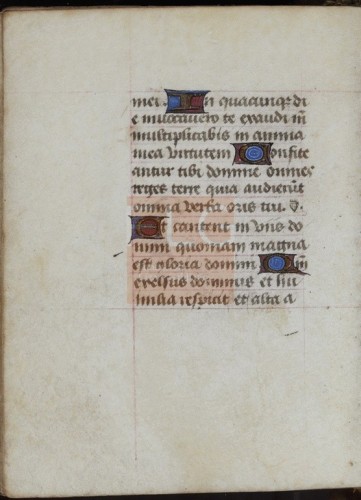 mei. In quacunqz di
e invocavero te exaudi m
multiplicabis in anima
mea virtutem Confite
antur tibi domine omnes
reges terre quia audierut
omnia verba oris tui.
Et cantent in viis do
mini quoniam magna
est gloria domini Qm
excelsus dominus et hu
milia respicit et alta a